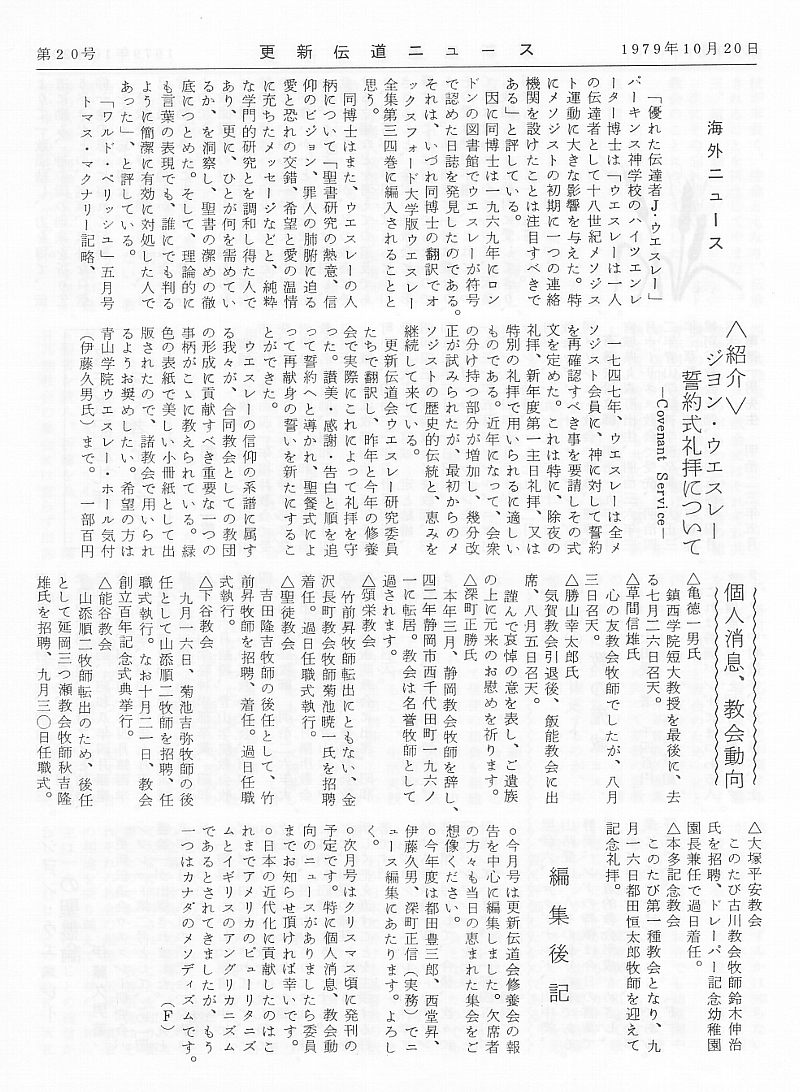 第20号
更新伝道ニュース
1979年10月20日
海外ニュース
「優れた伝達者J・ウエスレー」
パーキンス神学校のハイツエンレ
ーター博士は「ウエスレーは一人
の伝達者として十八世紀メソジス
ト運動に大きな影響を与えた。特
にメソジストの初期に一つの連絡
機関を設けたことは注目すべきで
ある」と評している。
因に同博士は一九六九年にロン
ドンの図書館でウエスレーが符号
で認めた日誌を発見したのである。
それは、いづれ同博士の翻訳でオ
ックスフォード大学版ウエスレー
全集第三四巻に編入されることと
思う。
同博士はまた、ウエスレーの人
柄について「聖書研究の熱意、信
仰のビジョン、罪人の肺腑に迫る
愛と恐れの交錯、希望と愛の温情
に充ちたメッセージなどと、純粋
な学問的研究とを調和し得た人で
あり、更に、ひとが何を需めてい
るか、を洞察し、聖書の潔めの徹
底につとめた。そして、理論的に
も言葉の表現でも、誰にでも判る
ように簡潔に有効に対処した人で
あった」、と評している。
「ワルド・ペリッシュ」五月号
トマス・マクナリー記略、
＜紹介＞
ジヨン・ウエスレー
誓約式礼拝について
―Covenant Service―
一七四七年、ウエスレーは全メ
ソジスト会員に、神に対して誓約
を再確認すべき事を要請しその式
文を定めた。これは特に、除夜の
礼拝、新年度第一主日礼拝、又は
特別の礼拝で用いられるに適しい
ものである。近年になって、会衆
の分け持つ部分が増加し、幾分改
正が試みられたが、最初からのメ
ソジストの歴史的伝統と、恵みを
継続して来ている。
更新伝道会ウエスレー研究委員
たちで翻訳し、昨年と今年の修養
会で実際にこれによって礼拝を守
った。讃美・感謝・告白と順を追
って誓約へと導かれ、聖餐式によ
って再献身の誓いを新たにするこ
とができた。
ウエスレーの信仰の系譜に属す
る我々が、合同教会としての教団
の形成に貢献すべき重要な一つの
事柄がこゝに教えられている。緑
色の表紙で美しい小冊紙として出
版されたので、諸教会で用いられ
るようお奨めしたい。希望の方は
青山学院ウエスレー・ホール気付
（伊藤久男氏）まで。　一部百円
個人消息、教会動向
△亀徳一男氏
鎮西学院短大教授を最後に、去
る七月二六日召天。
△草間信雄氏
心の友教会牧師でしたが、八月
三日召天。
△勝山幸太郎氏
気賀教会引退後、飯能教会に出
席、八月五日召天。
謹んで哀悼の意を表し、ご遺族
の上に元来のお慰めを祈ります。
△深町正勝氏
本年三月、静岡教会牧師を辞し、
四二年静岡市西千代田町一九六ノ
一に転居。教会は名誉牧師として
過されます。
△頌栄教会
竹前昇牧師転出にともない、金
沢長町教会牧師菊池暁一氏を招聘
着任。過日任職式執行。
△聖徒教会
吉田隆吉牧師の後任として、竹
前昇牧師を招聘、着任。過日任職
式執行。
△下谷教会
九月一六日、菊池吉弥牧師の後
任として山添順二牧師を招聘、任
職式執行。なお十月二一日、教会
創立百年記念式典挙行。
△熊谷教会
山添順二牧師転出のため、後任
として延岡三つ瀬教会牧師秋吉隆
雄氏を招聘、九月三〇日任職式。
△大塚平安教会
このたび古川教会牧師鈴木伸治
氏を招聘、ドレーパー記念幼稚園
園長兼任で過日着任。
△本多記念教会
このたび第一種教会となり、九
月一六日都田恒太郎牧師を迎えて
記念礼拝。
編集後記
○今月号は更新伝道会修養会の報
告を中心に編集しました。欠席者
の方々も当日の恵まれた集会をご
想像ください。
○今年度は都田豊三郎、西堂昇、
伊藤久男、深町正信（実務）でニ
ュース編集にあたります。よろし
く。
○次月号はクリスマス頃に発刊の
予定です。特に個人消息、教会動
向のニュースがありましたら委員
までお知らせ頂ければ幸いです。
○日本の近代化に貢献したのはこ
れまでアメリカのピューリタニズ
ムとイギリスのアングリカニズム
であるとされてきましたが、もう
一つはカナダのメソディズムです。
（F）